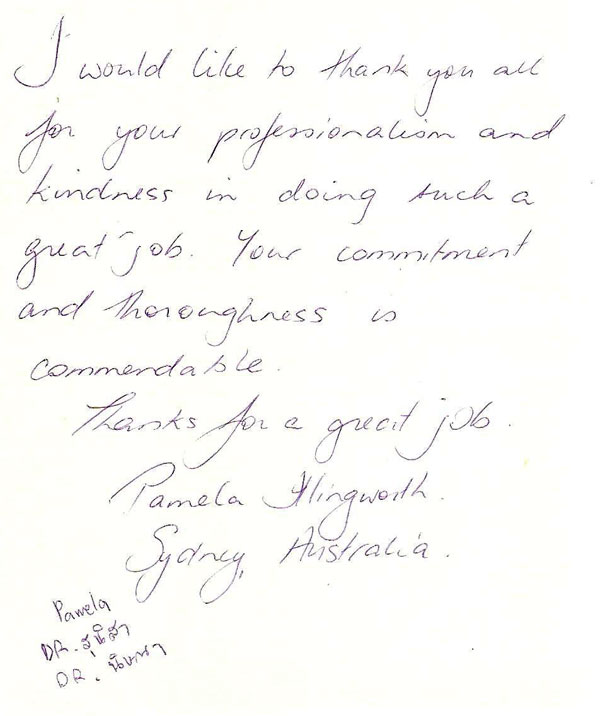 I would like to thank you all
for your professionalism and
kindness in doing such a
great job. Your commitment
and thoroughness is
commendable.
Thanks for a great job.
Pamela Illingworth.
Sydney, Australia.
Pamela
DR. สุนิสา
DR.